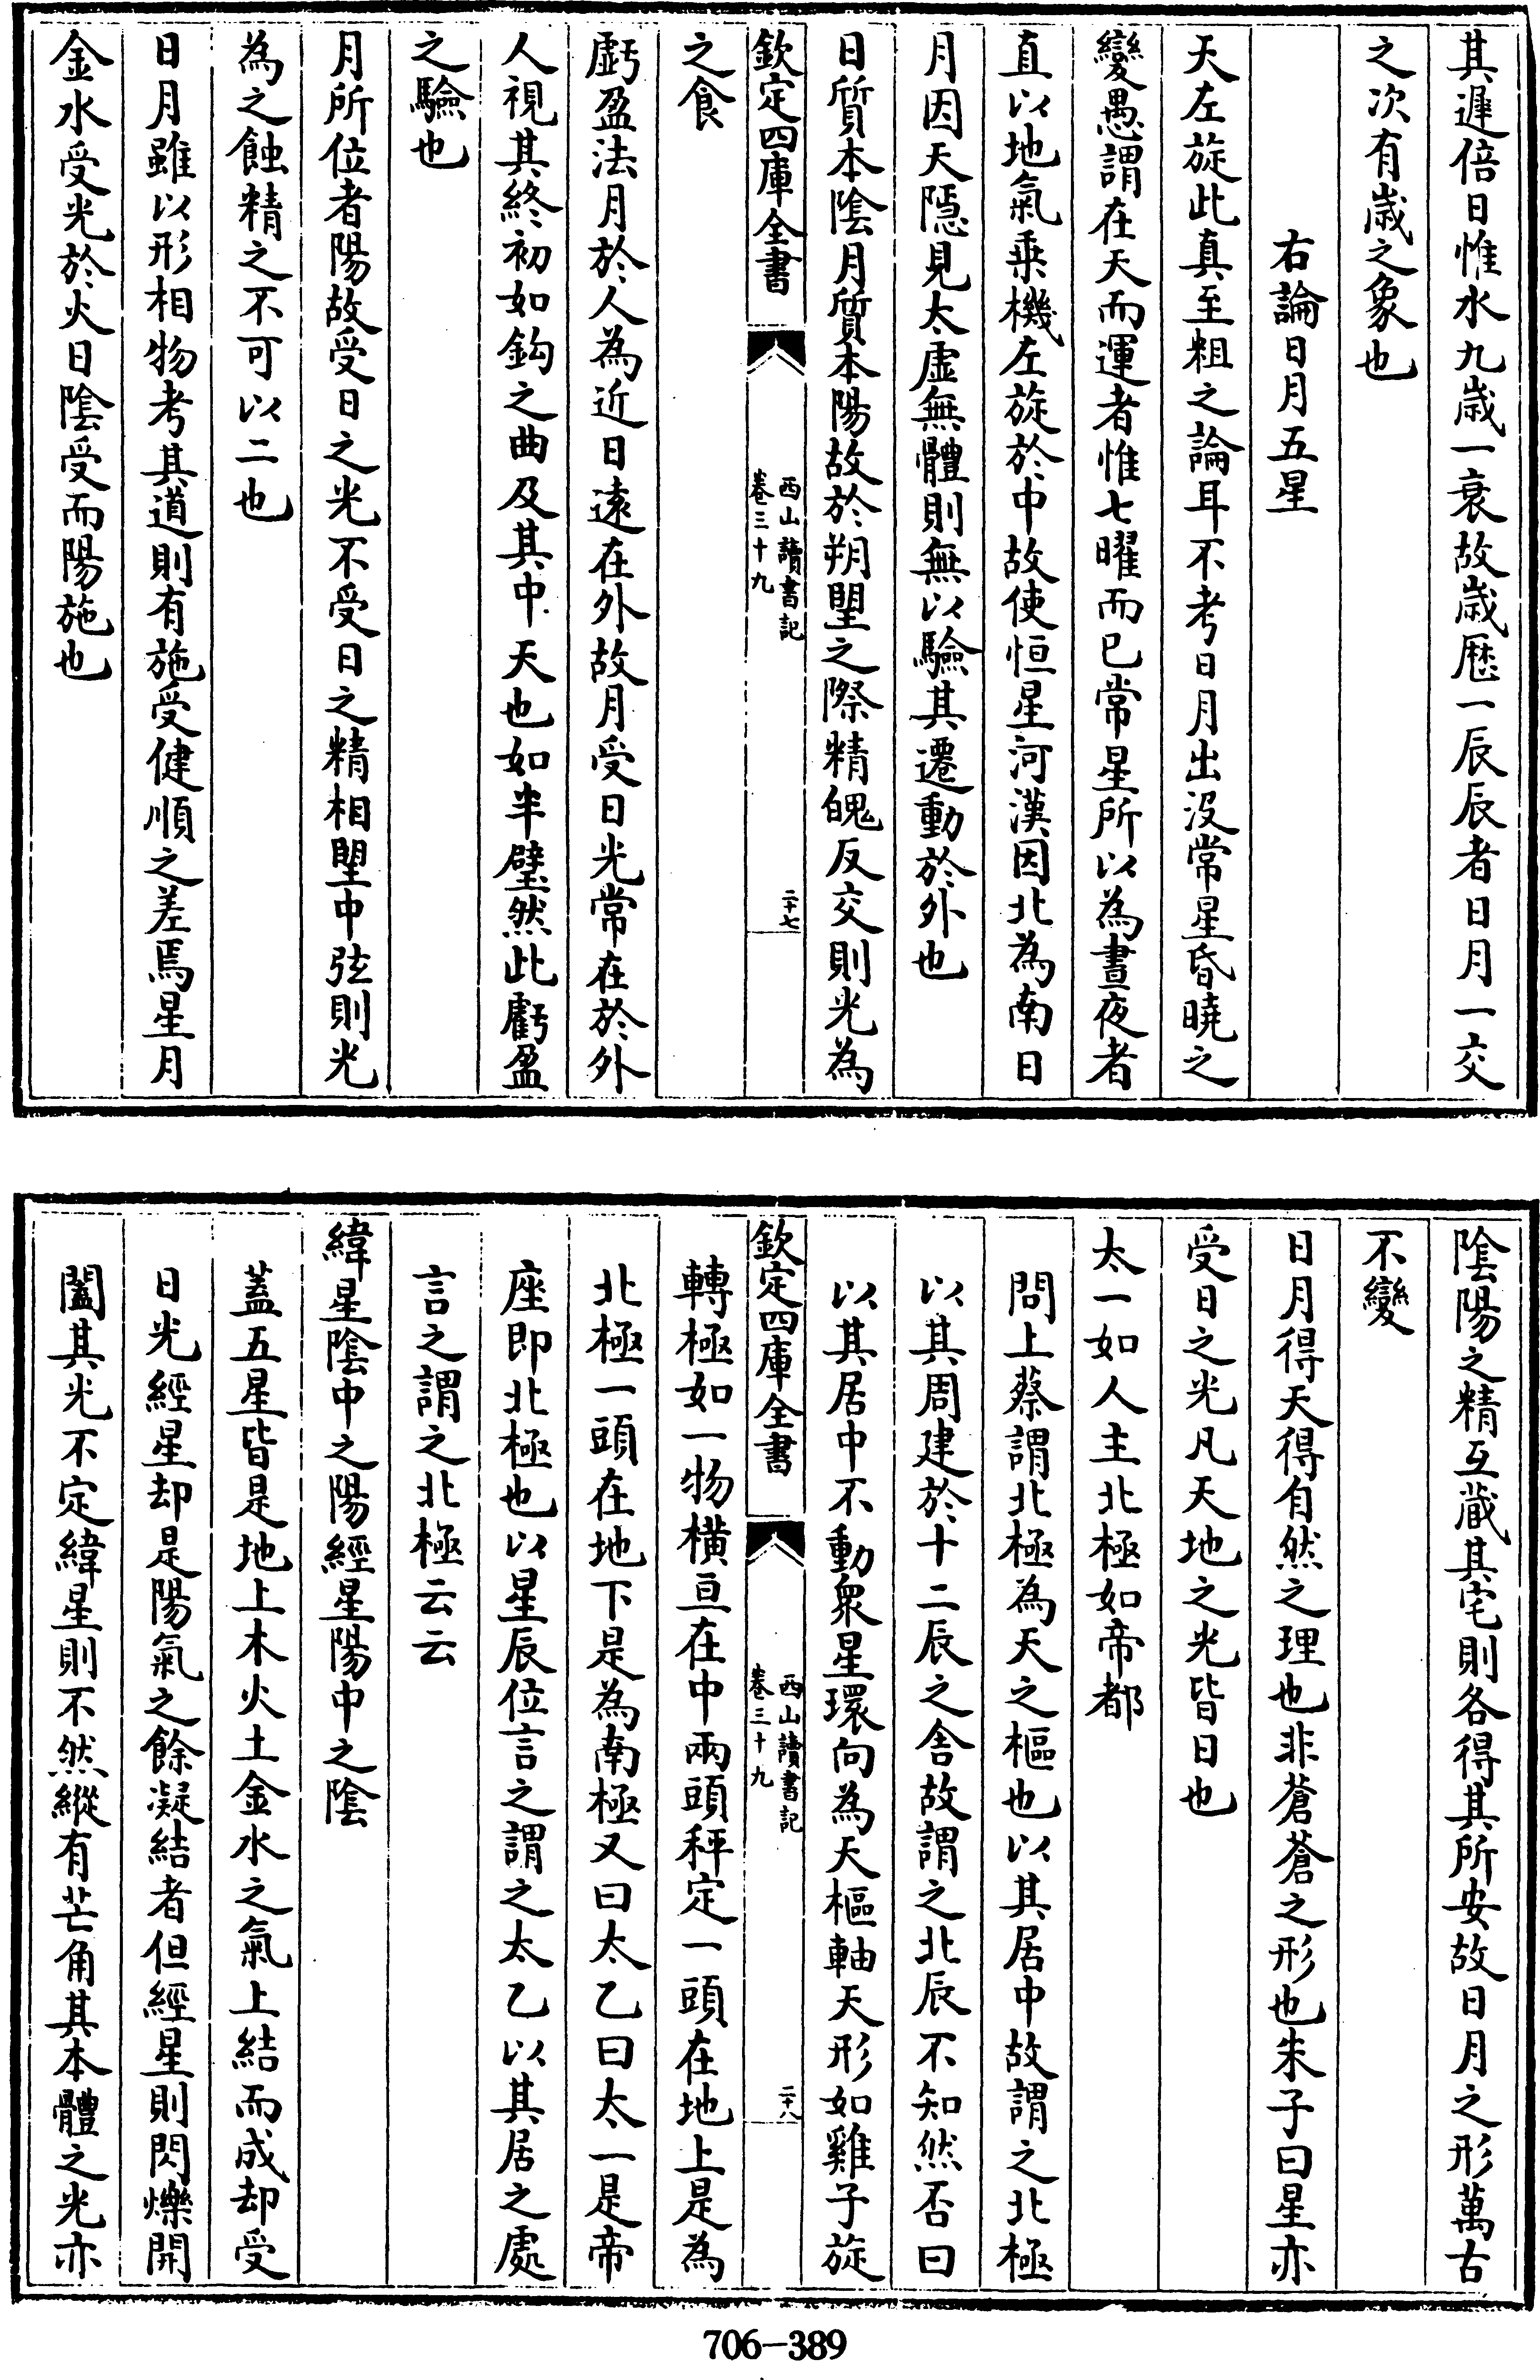 其遲倍日惟水九歲一衰故歲歷一辰辰者日月一交
之次有歲之象也
右論日月五星
天左旋此真至粗之論耳不考日月出没常星昏曉之
變愚謂在天而運者惟七曜而已常星所以為晝夜者
直以地氣乗機左旋於中故使恒星河漢因北為南日
月因天隱見太虛無體則無以驗其遷動於外也
日質本陰月質本陽故於朔望之際精魄反交則光為
欽定四庫全書
西山讀書記
卷三十九
二十七
之食
虧盈法月於人為近日遠在外故月受日光常在於外
人視其終初如鈎之曲及其中天也如半璧然此虧盈
之驗也
月所位者陽故受日之光不受日之精相望中弦則光
為之蝕精之不可以二也
日月雖以形相物考其道則有施受健順之差焉星月
金水受光於火日陰受而陽施也
陰陽之精互藏其宅則各得其所安故日月之形萬古
不變
日月得天得自然之理也非蒼蒼之形也朱子曰星亦
受日之光凡天地之光皆日也
太一如人主北極如帝都
問上蔡謂北極為天之樞也以其居中故謂之北極
以其周建於十二辰之舎故謂之北辰不知然否曰
以其居中不動衆星環向為天樞軸天形如雞子旋
欽定四庫全書
西山讀書記
卷三十九
二十八
轉極如一物横亘在中兩頭秤定一頭在地上是為
北極一頭在地下是為南極又曰太乙曰太一是帝
座即北極也以星辰位言之謂之太乙以其居之處
言之謂之北極云云
緯星陰中之陽經星陽中之陰
蓋五星皆是地上木火土金水之氣上結而成却受
日光經星却是陽氣之餘凝結者但經星則閃爍開
闔其光不定緯星則不然縱有芒角其本體之光亦
706-389